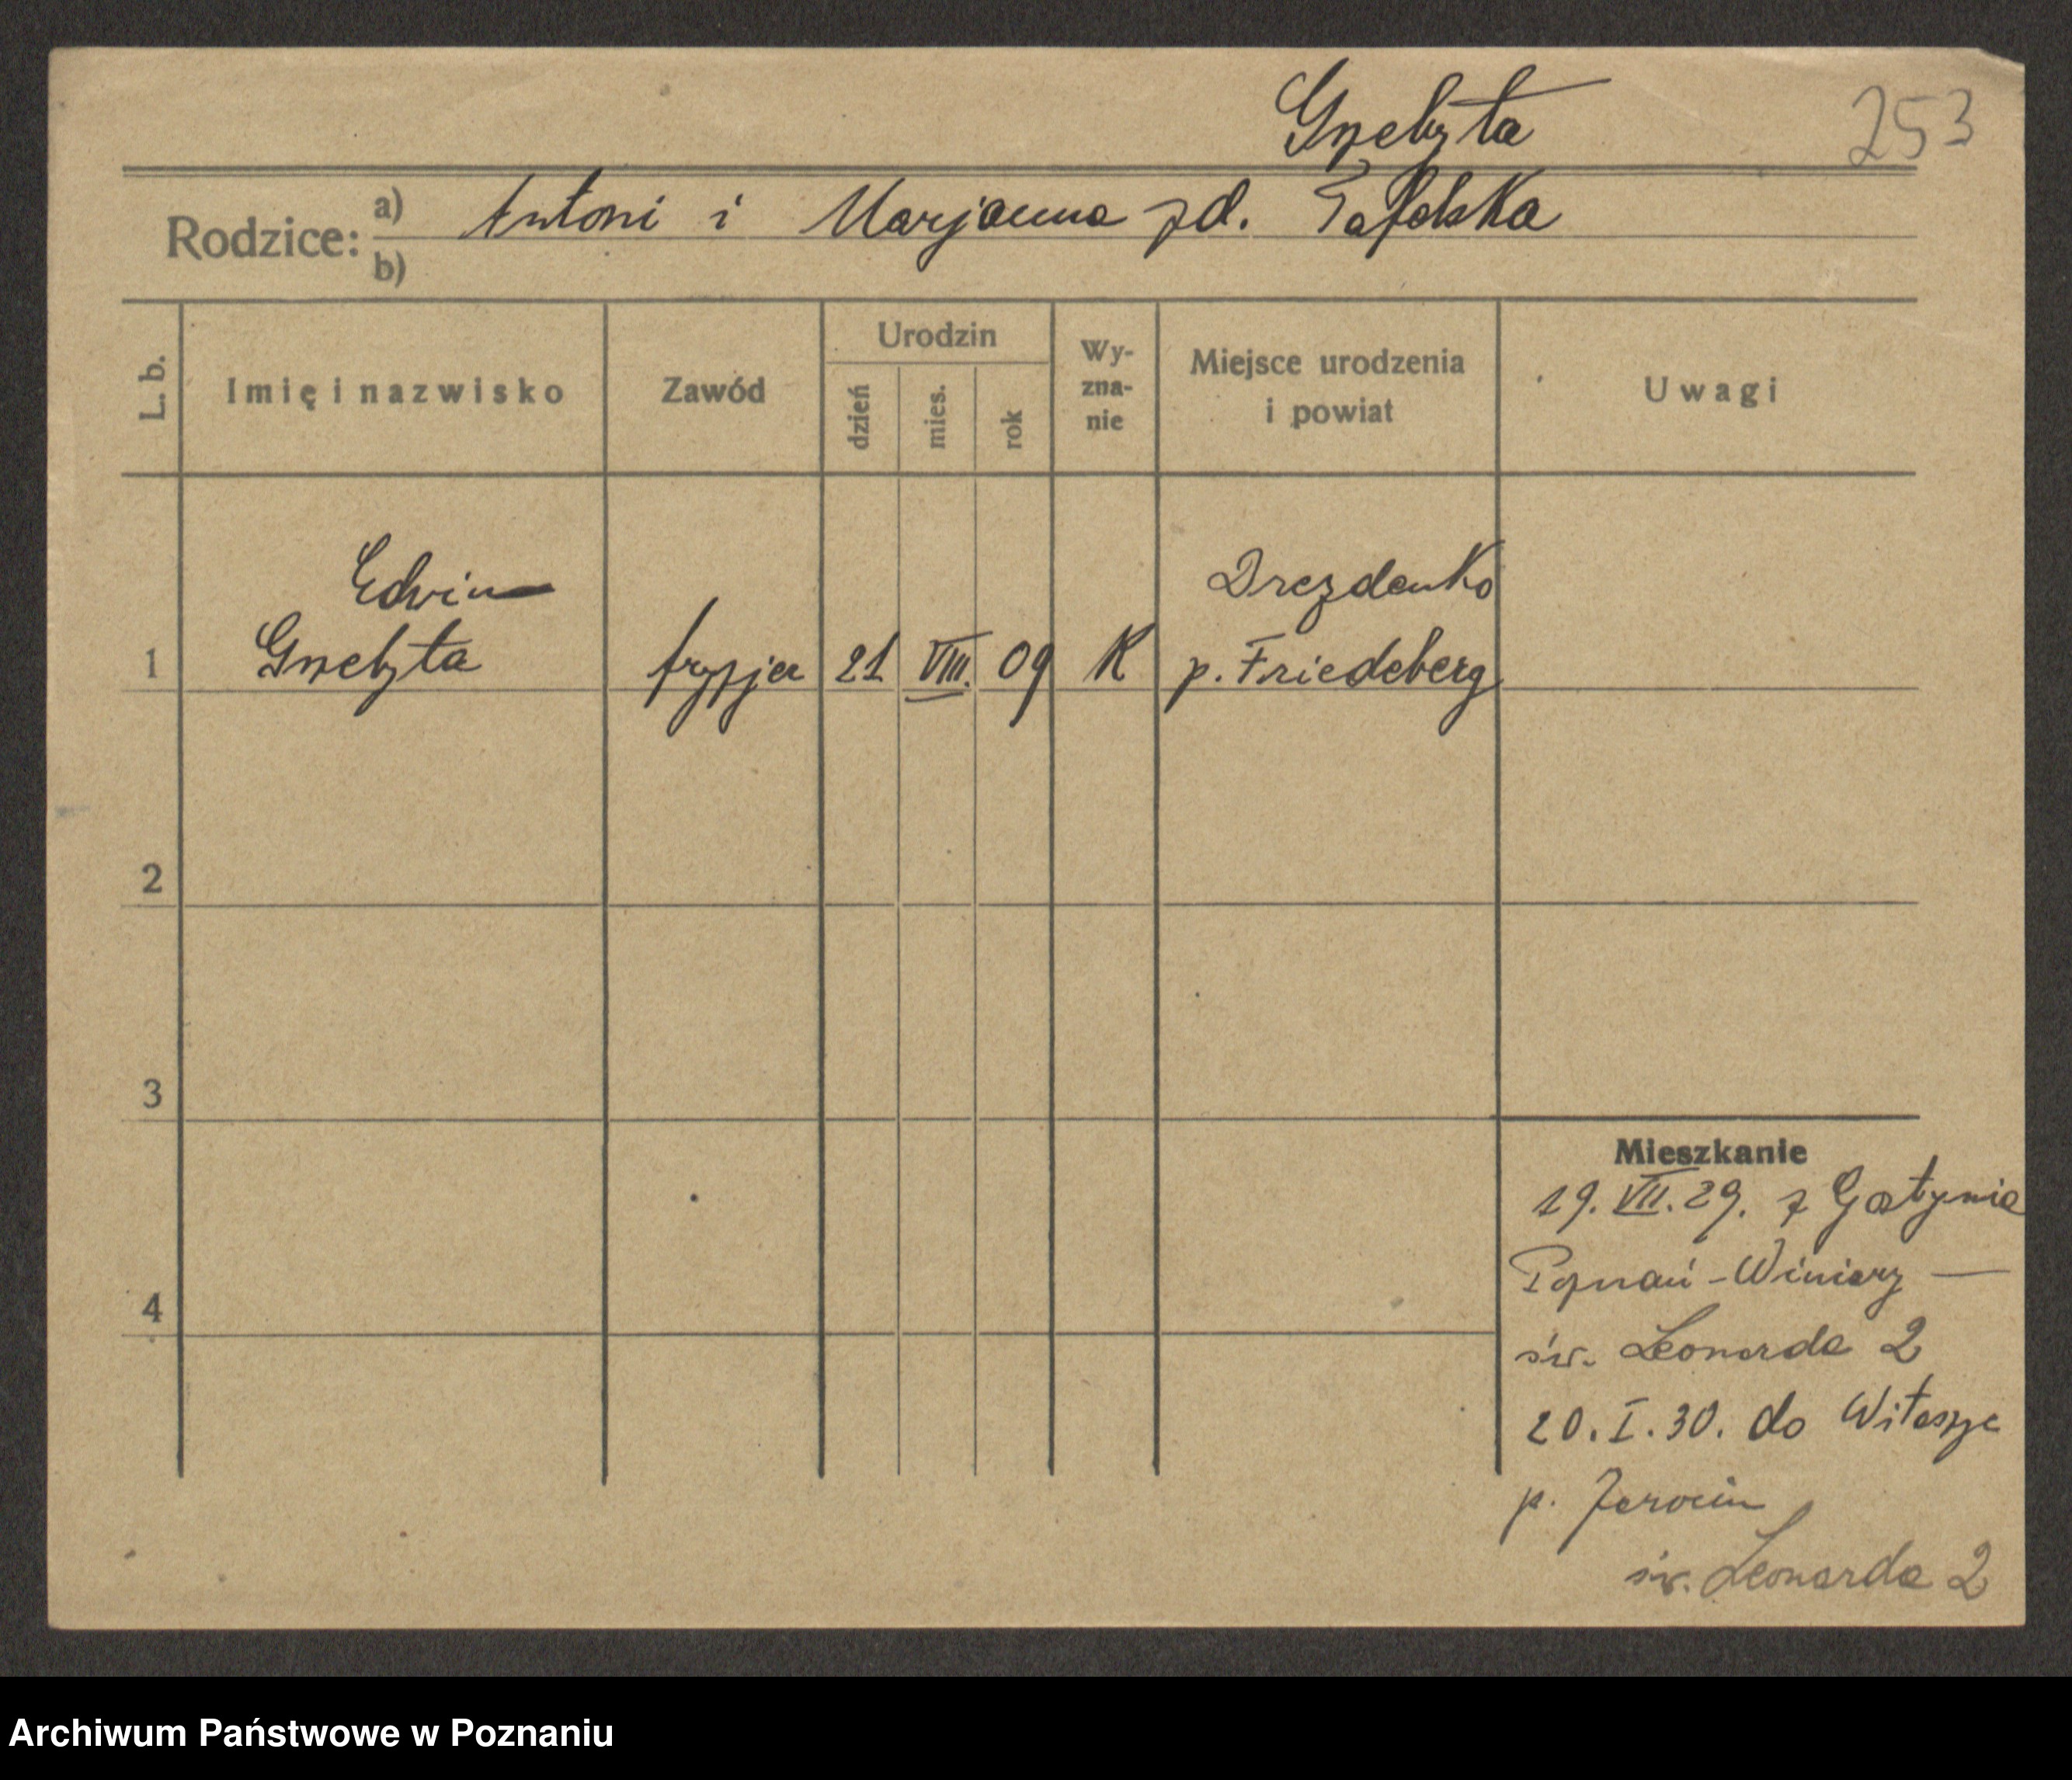 Grzebyta
253
Rodzice: a) Antoni i Marjanna zd.
b)
L. b.
Imię i nazwisko
Zawód
Urodzin
dzień
mies.
rok
Wy-
zna-
nie
Miejsce urodzenia
i powiat
Uwagi
Edwin
Drezdenko
1 Grzebyta fryzjer 21 VIII. 09 K p. Friedeberg
2
3
4
Mieszkanie
19. VII. 29. z Gostynia
Poznań - Winiary —
św. Leonarda 2
20. I. 30. do Witaszyc
p. Jarocin
św. Leonarda 2
Archiwum Państwowe w Poznaniu